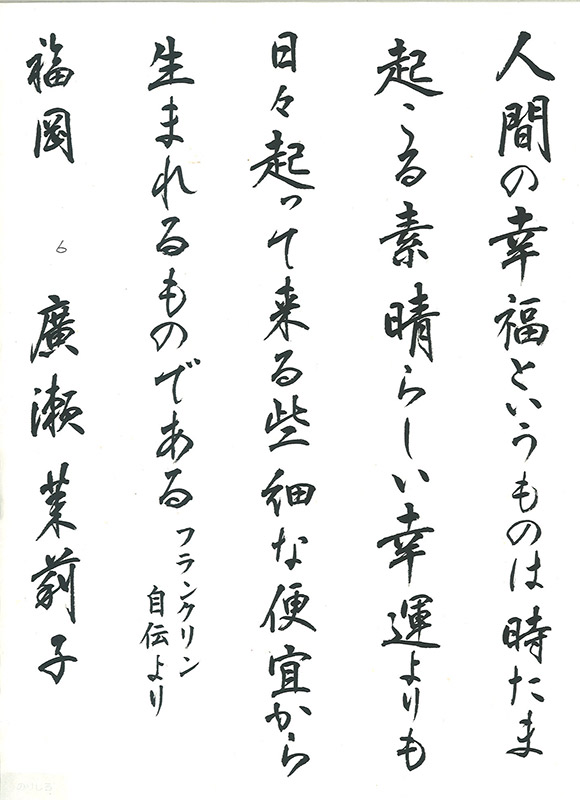 人間の幸福というものは時たま
起こる素晴らしい幸運よりも
日々起って来る些細な便宜から
生まれるものである
フランクリン
自伝より
福岡
6
廣瀬茉莉子